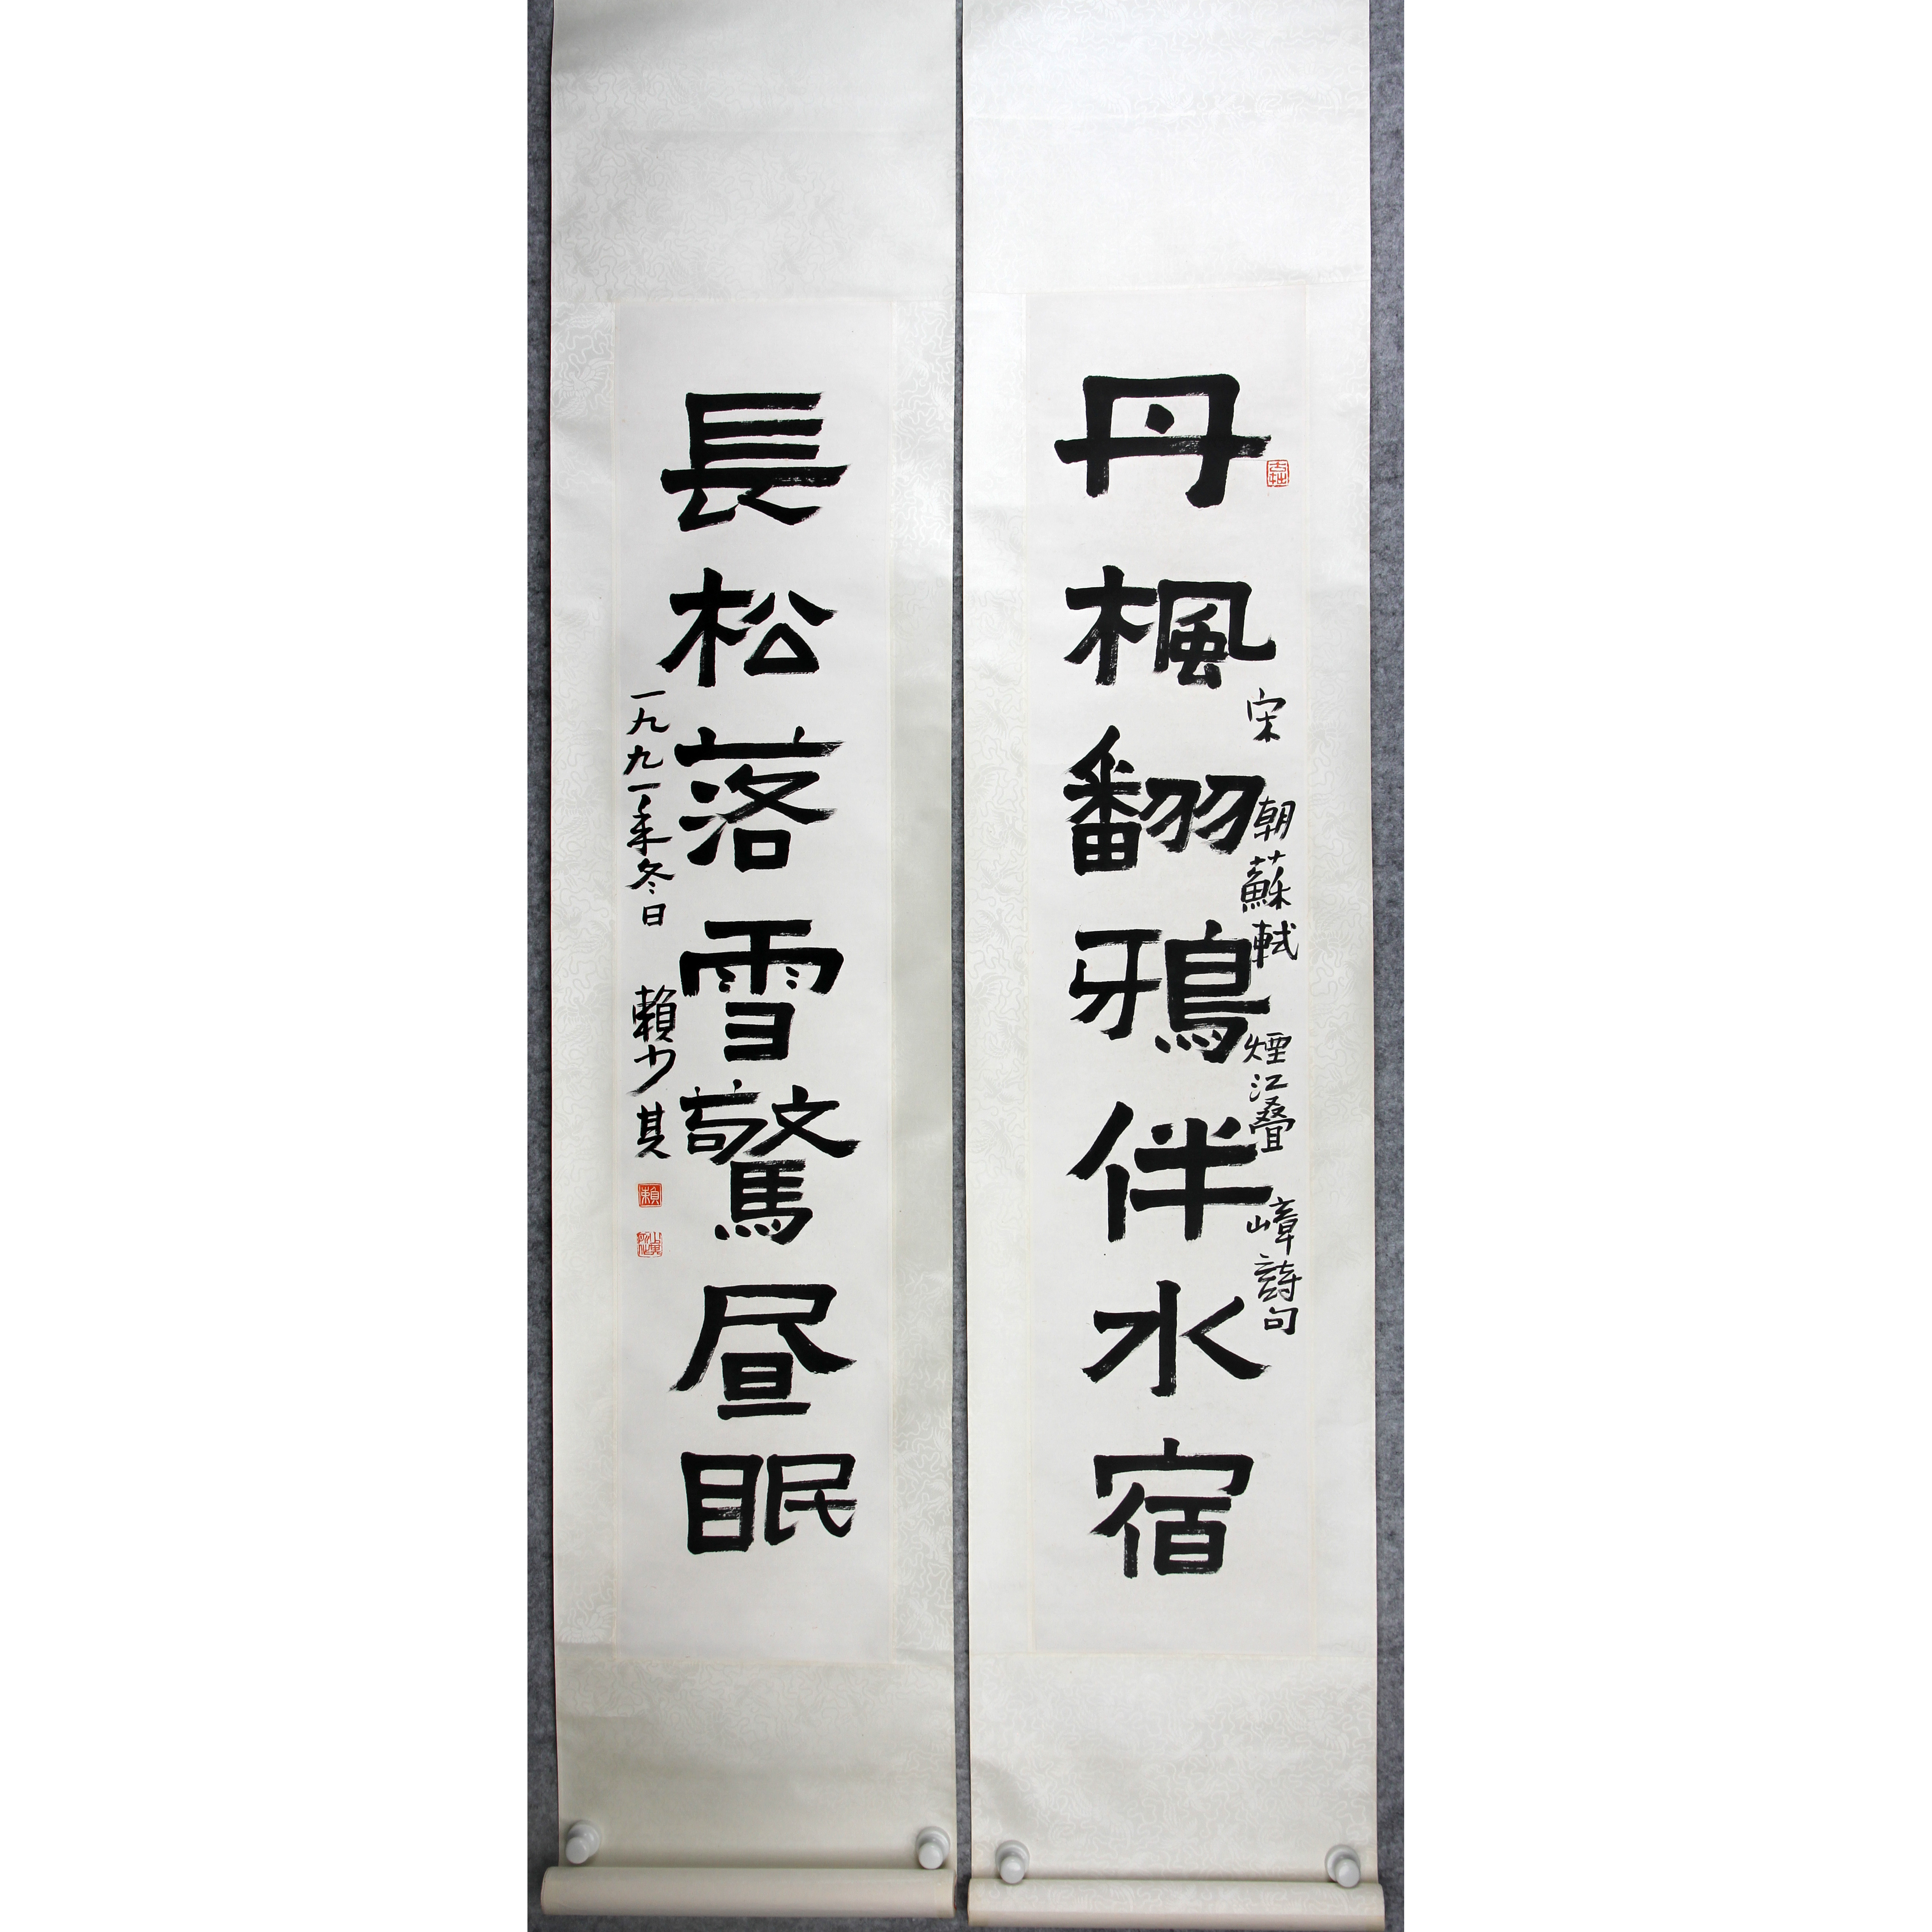 丹楓翻鴉伴水宿
宋朝蘇軾煙江叠嶂詩句
長松落雪驚昼眠
一九九一年冬日
賴少其